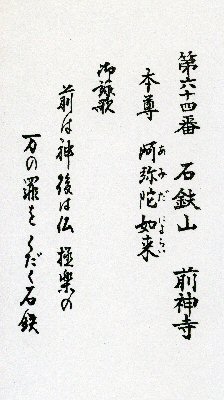 第六十四番 石鉄山 前神寺
本尊 阿弥陀如来
あみだにょらい
御詠歌
前は神後は仏極楽の
万の罪をくだく石鉄